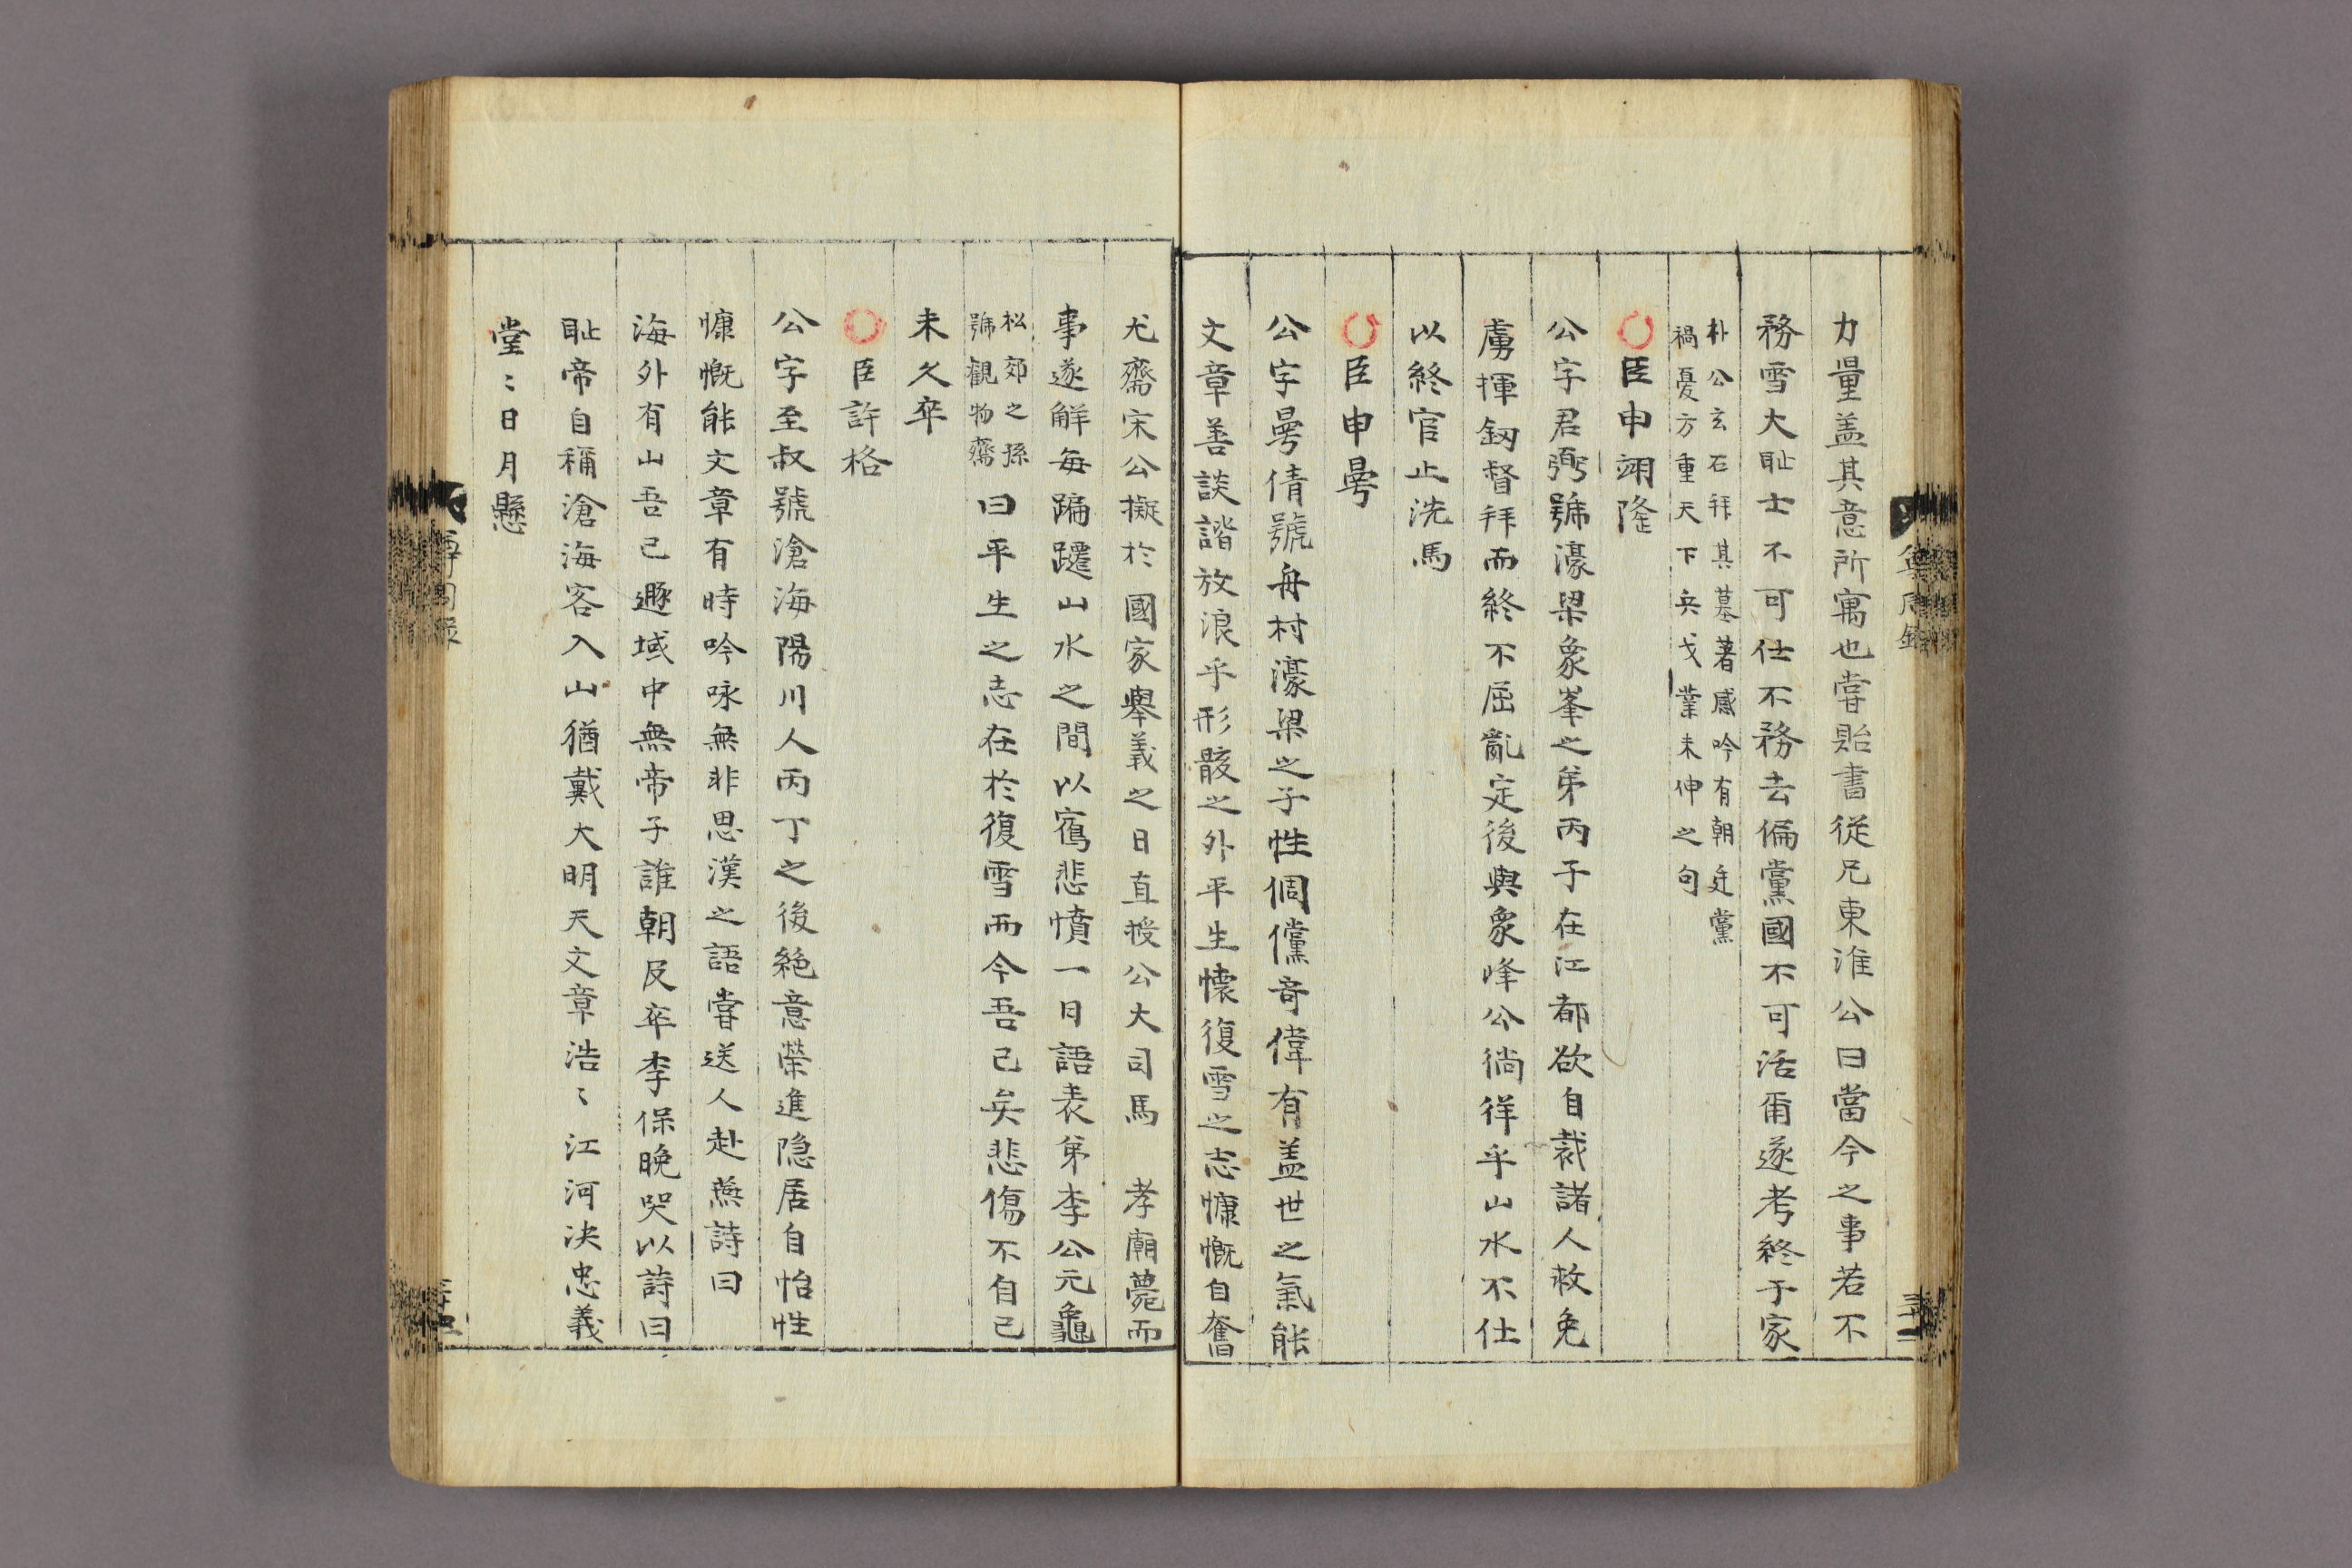 力量盖其意所寓也甞貽書從兄東淮公曰當今之事若不
務雪大恥士不可仕不務去偏黨國不可活爾遂考終于家
朴公玄石拜其墓著感吟有朝廷黨
禍憂方重天下兵戈業未伸之句
臣申翊隆
公字君弼號濠梁象峯之弟丙子在江都欲自裁諸人救免
虜揮釰督拜而終不屈亂定後與象峰公徜徉乎山水不仕
以終官止洗馬
臣申暠
公字暠倩號舟村濠梁之子性倜儻奇偉有盖世之氣能
文章善談諧放浪乎形骸之外平生懷復雪之志慷慨自奮
尤齋宋公擬於國家舉義之日直授公大司馬 孝廟薨而
事遂解每蹁躚山水之間以寓悲憤一日語表弟李公元龜
松郊之孫
號觀物齋
曰平生之志在於復雪而今吾已矣悲傷不自已
未久卒
臣許格
公字至叔號滄海陽川人丙丁之後絶意榮進隐居自怡性
慷慨能文章有時吟咏無非思漢之語甞送人赴燕詩曰
海外有山吾已遯域中無帝子誰朝及卒李保晚哭以詩曰
恥帝自稱滄海客入山猶戴大明天文章浩〻江河决忠義
堂〻日月懸